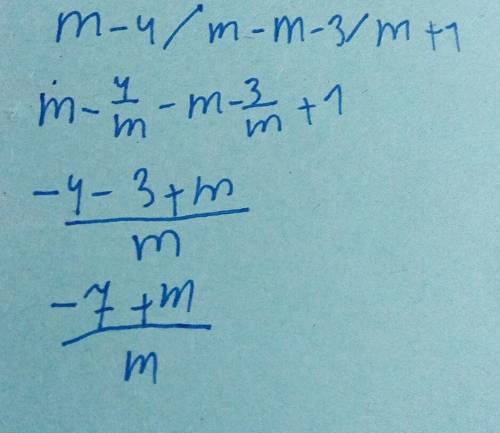 m-4/m-m-3/m+1
m-4/m-m-3/m+1
-4-3+m/m
-7+m/m